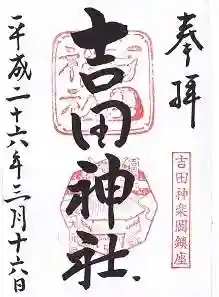 奉拝
吉田神楽岡鎮座
吉田神社
平成二十六年三月十六日